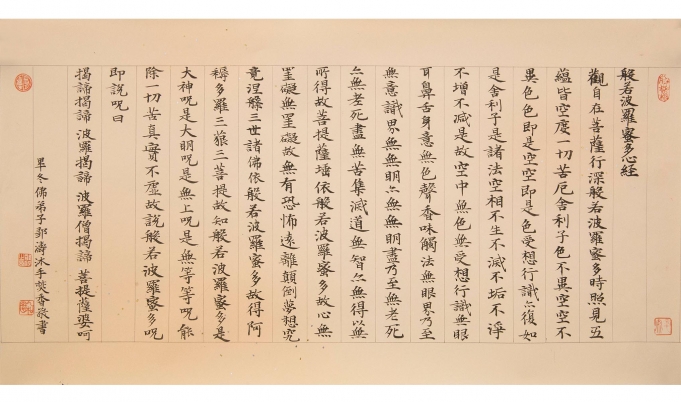 般若波羅蜜多心経
觀自在菩薩行深般若波羅蜜多時照見五
蘊皆空度一切苦厄舍利子色不異空空不
異色色即是空空即是色受想行識亦復如
是舍利子是諸法空相不生不滅不垢不淨
不增不減是故空中無色無受想行識無眼
耳鼻舌身意無色聲香味觸法無眼界乃至
無意識界無無明亦無無明盡乃至無老死
亦無老死盡無苦集滅道無智亦無得以無
所得故菩提薩埵依般若波羅蜜多故心無
罣礙無罣礙故無有恐怖遠離顛倒夢想究
竟涅槃三世諸佛依般若波羅蜜多故得阿
耨多羅三藐三菩提故知般若波羅蜜多是
大神呪是大明呪是無上呪是無等等呪能
除一切苦真實不虛故說般若波羅蜜多呪
即說呪曰
揭諦揭諦 波羅揭諦 波羅僧揭諦 菩提薩婆呵
冬佛弟子郭濤沐手焚香敬書